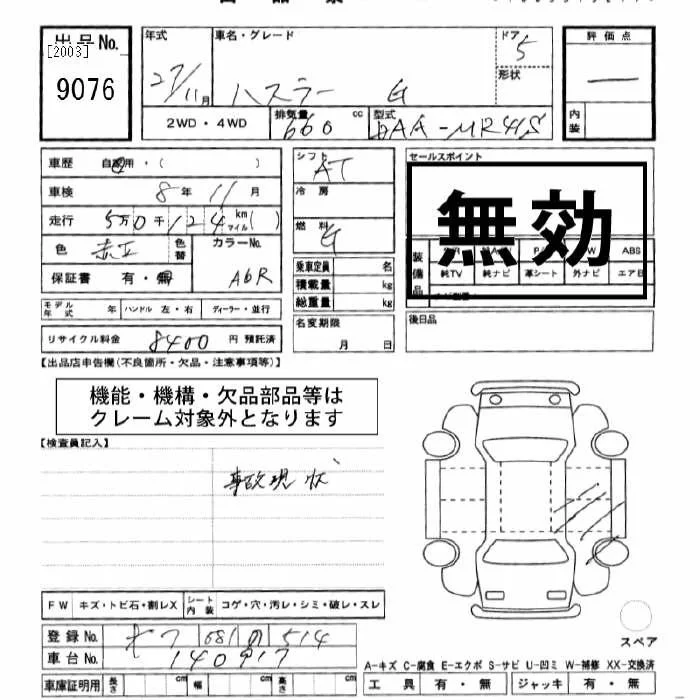 出品 No.
[2003]
9076
年式 27/11月
車名・グレード ハスラー G
ドア 5
形状
評価点 —
内装
2WD・4WD
排気量 660 cc
型式 DAA-MR41S
車歴 自家用・( )
車検 8年 11月
走行 5万0千124 km マイル( )
色
色替
カラーNo. A6R
保証書 有・無
モデル年式 年 ハンドル 左・右 ディーラー・並行
リサイクル料金 8400 円 預託済
シフト AT
冷房
燃料 G
乗車定員 名
積載量 kg
総重量 kg
名変期限
月 日
セールスポイント
無効
装備品
ABS
純TV 純ナビ 革シート 外ナビ エアB
後日品
【出品店申告欄(不良箇所・欠品・注意事項等)】
機能・機構・欠品部品等は
クレーム対象外となります
【検査員記入】
事故現状
FW キズ・トビ石・割レX シート内装 コゲ・穴・汚レ・シミ・破レ・スレ
登録 No. 581 514
車台 No. 140917
車庫証明用 長さ cm 幅 cm 高さ cm
スペア
A-キズ C-腐食 E-エクボ S-サビ U-凹ミ W-補修 XX-交換済
工具 有・無 ジャッキ 有・無